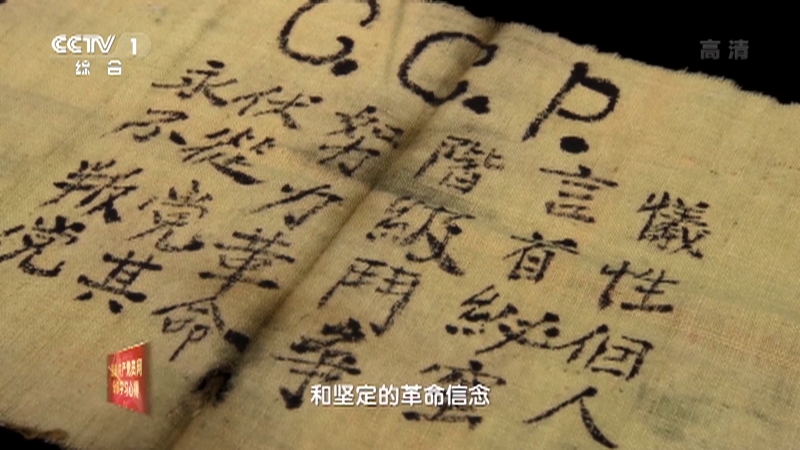 CCTV 1
综合
高清
C.C.P.
犧性個人
言首
階級鬥争
努力革命
伏從党其
永不叛党
和坚定的革命信念